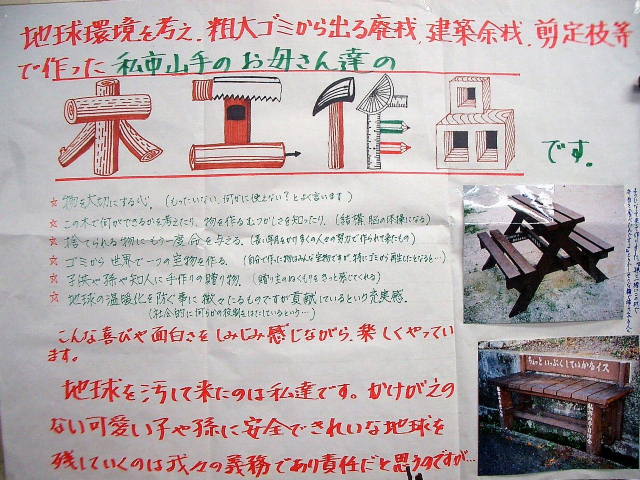 地球環境を考え、粗大ゴミから出る廃材、建築余材、剪定枝等
で作った 私市山手のお母さん達の
木工作品
です。
☆ 物を大切にする心。(もったいない、何かに使えない?とよく言います)
☆ この木で何ができるかを考えたり、物を作るむつかしさを知ったり。(結構脳の体操になる)
☆ 捨てられる物にもう一度命を与える。(長い年月をかけ多くの人々の努力で作られて来たもの)
☆ ゴミから世界で一つの宝物を作る。(自分で作った物はみんな宝物ですが、特にゴミから再生したとなると…)
☆ 子供や孫や知人に手作りの贈り物。(贈り主のぬくもりをきっと感じてくれる)
☆ 地球の温暖化を防ぐ事に微々たるものですが貢献しているという充実感。
(社会的に何らかの役割をはたしているという…)
こんな喜びや面白さをしみじみ感じながら、楽しくやってい
ます。
地球を汚して来たのは私達です。かけがえの
ない可愛い子や孫に安全できれいな地球を
残していくのは我々の義務であり責任だと思うのですが…
ちょっといっぷくしていかるイス